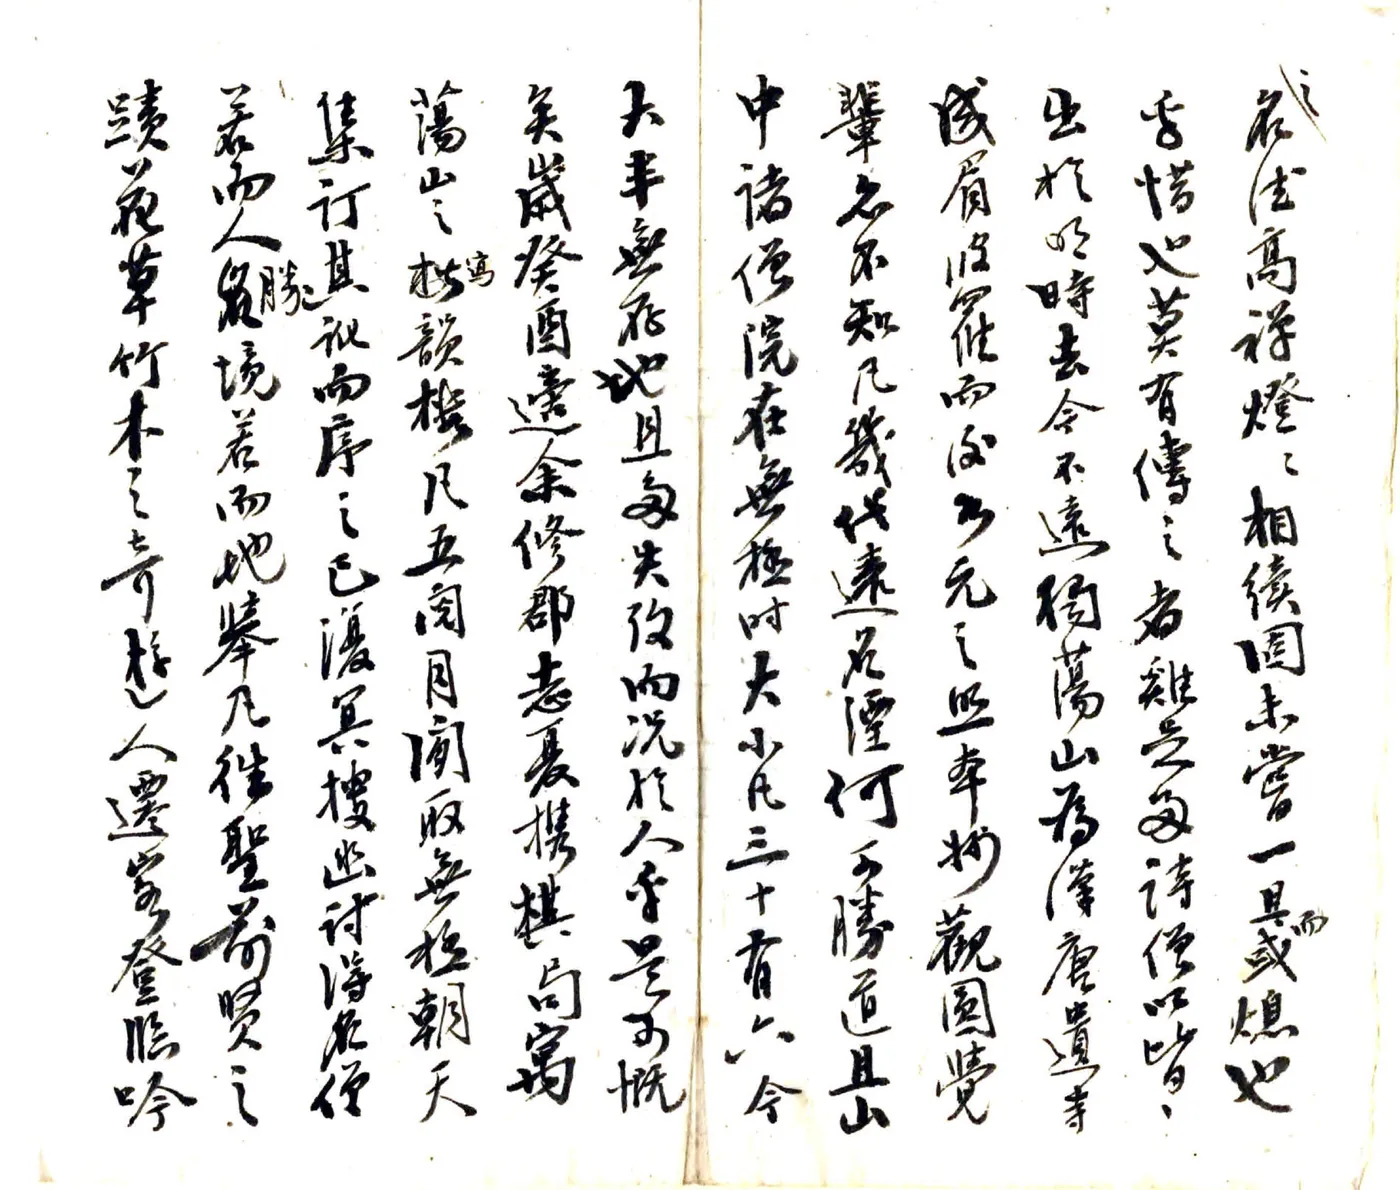 名法高禪燈〻相續固未嘗一具而或熄也
乎惜也莫有傳之者雞足多詩僧以皆〻
出於明時去今不遠獨蕩山為漢唐遺寺
峨眉波羅而後如元之照本州觀圓覺
輩名不知凡幾代遠名湮何可勝道且山
中諸僧院在無極時大小凡三十有六今
大半無存地且多失攷而況於人乎是可慨
矣歲癸酉邀余修郡志夏攜棋局寓
蕩山之寫韻樓凡五閱月閒取無極朝天
集訂其訛而序之已復冥搜幽討得名僧
若而人勝境若而地舉凡往聖前賢之
蹟花草竹木之奇遊人遷客登臨吟